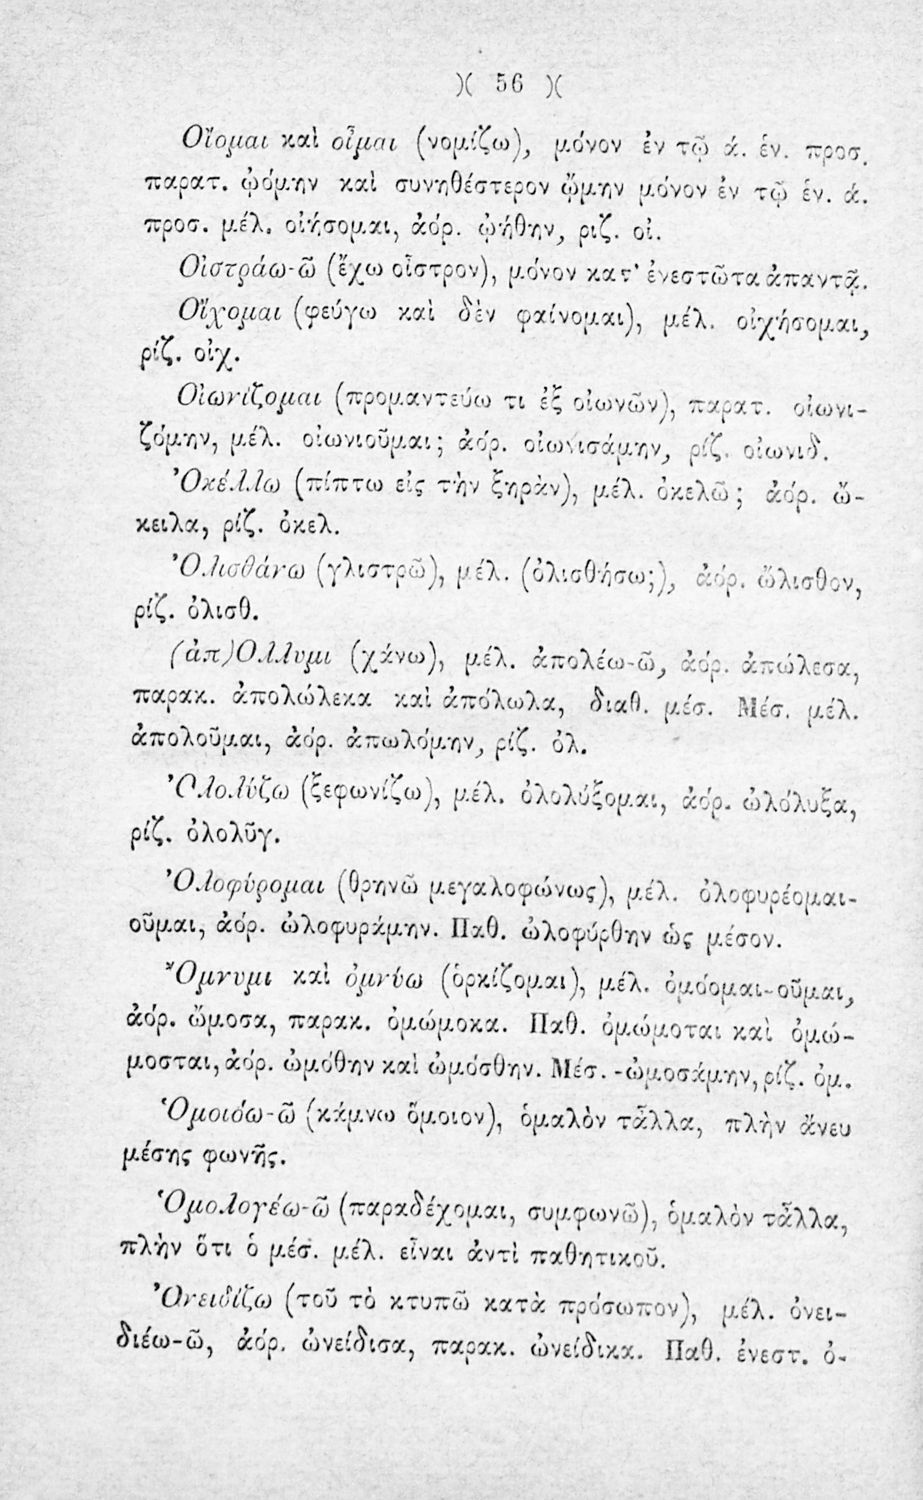 )( 56 )(
Οἴομαι καὶ οἶμαι (νομίζω), μόνον ἐν τῷ ά. ἑν. προσ.
παρατ. ᾠόμην καὶ συνηθέστερον ᾤμην μόνον ἐν τῷ ἑν. ά.
προσ. μέλ. οἰήσομαι, ἀόρ. ᾠήθην, ριζ. οἰ.
Οἰστράω-ῶ (ἔχω οἶστρον), μόνον κατ' ἐνεστῶτα ἀπαντᾷ.
Οἴχομαι (φεύγω καὶ δὲν φαίνομαι), μέλ. οἰχήσομαι,
ρίζ. οἰχ.
Οἰωνίζομαι (προμαντεύω τι ἐξ οἰωνῶν), παρατ. οἰωνι-
ζόμην, μέλ. οἰωνιοῦμαι; ἀόρ. οἰωνισάμην, ρίζ. οἰωνιδ.
Ὀκέλλω (πίπτω εἰς τὴν ξηρὰν), μέλ. ὀκελῶ; ἀόρ. ὤ-
κειλα, ρίζ. ὀκελ.
Ὀλισθάνω (γλιστρῶ), μέλ. (ὀλισθήσω;), ἀόρ. ὤλισθον,
ρίζ. ὀλισθ.
(ἀπ)Ολλυμι (χάνω), μέλ. ἀπολέω-ῶ, ἀόρ. ἀπώλεσα,
παρακ. ἀπολώλεκα καὶ ἀπόλωλα, διαθ. μέσ. Μέσ. μέλ.
ἀπολοῦμαι, ἀόρ. ἀπωλόμην, ρίζ. ὀλ.
Ὀλολύζω (ξεφωνίζω), μέλ. ὀλολύξομαι, ἀόρ. ὠλόλυξα,
ρίζ. ὀλολῦγ.
Ὀλοφύρομαι (θρηνῶ μεγαλοφώνως), μέλ. ὀλοφυρέομαι-
οῦμαι, ἀόρ. ὠλοφυράμην. Παθ. ὠλοφύρθην ὡς μέσον.
Ὄμνυμι καὶ ὀμνύω (ὁρκίζομαι), μέλ. ὀμόομαι-οῦμαι,
ἀόρ. ὤμοσα, παρακ. ὀμώμοκα. Παθ. ὀμώμοται καὶ ὀμώ-
μοσται, ἀόρ. ὠμόθην καὶ ὠμόσθην. Μέσ. -ὠμοσάμην, ρίζ. ὀμ.
Ὁμοιόω-ῶ (κάμνω ὅμοιον), ὁμαλὸν τἆλλα, πλὴν ἄνευ
μέσης φωνῆς.
Ὁμολογέω-ῶ (παραδέχομαι, συμφωνῶ), ὁμαλὸν τἆλλα,
πλὴν ὅτι ὁ μέσ. μέλ. εἶναι ἀντὶ παθητικοῦ.
Ὀνειδίζω (τοῦ τὸ κτυπῶ κατὰ πρόσωπον), μέλ. ὀνει-
διέω-ῶ, ἀόρ. ὠνείδισα, παρακ. ὠνείδικα. Παθ. ἐνεστ. ὀ-